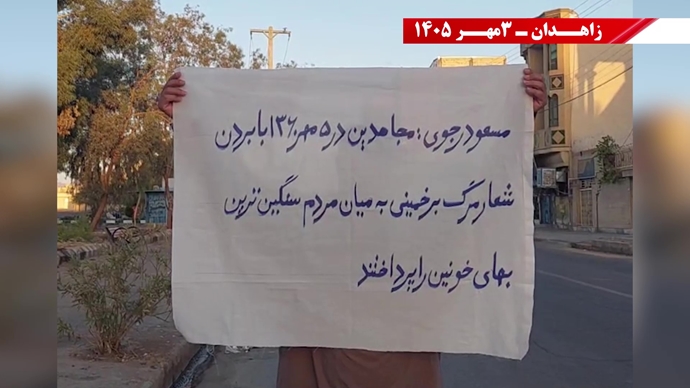 زاهدان ـ ۳مهر ۱۴۰۵
مسعود رجوی: مجاهدین در ۵ مهر ۱۳۶۰ با بردن
شعار مرگ بر خمینی به میان مردم سنگین ترین
بهای خونین را پرداختند